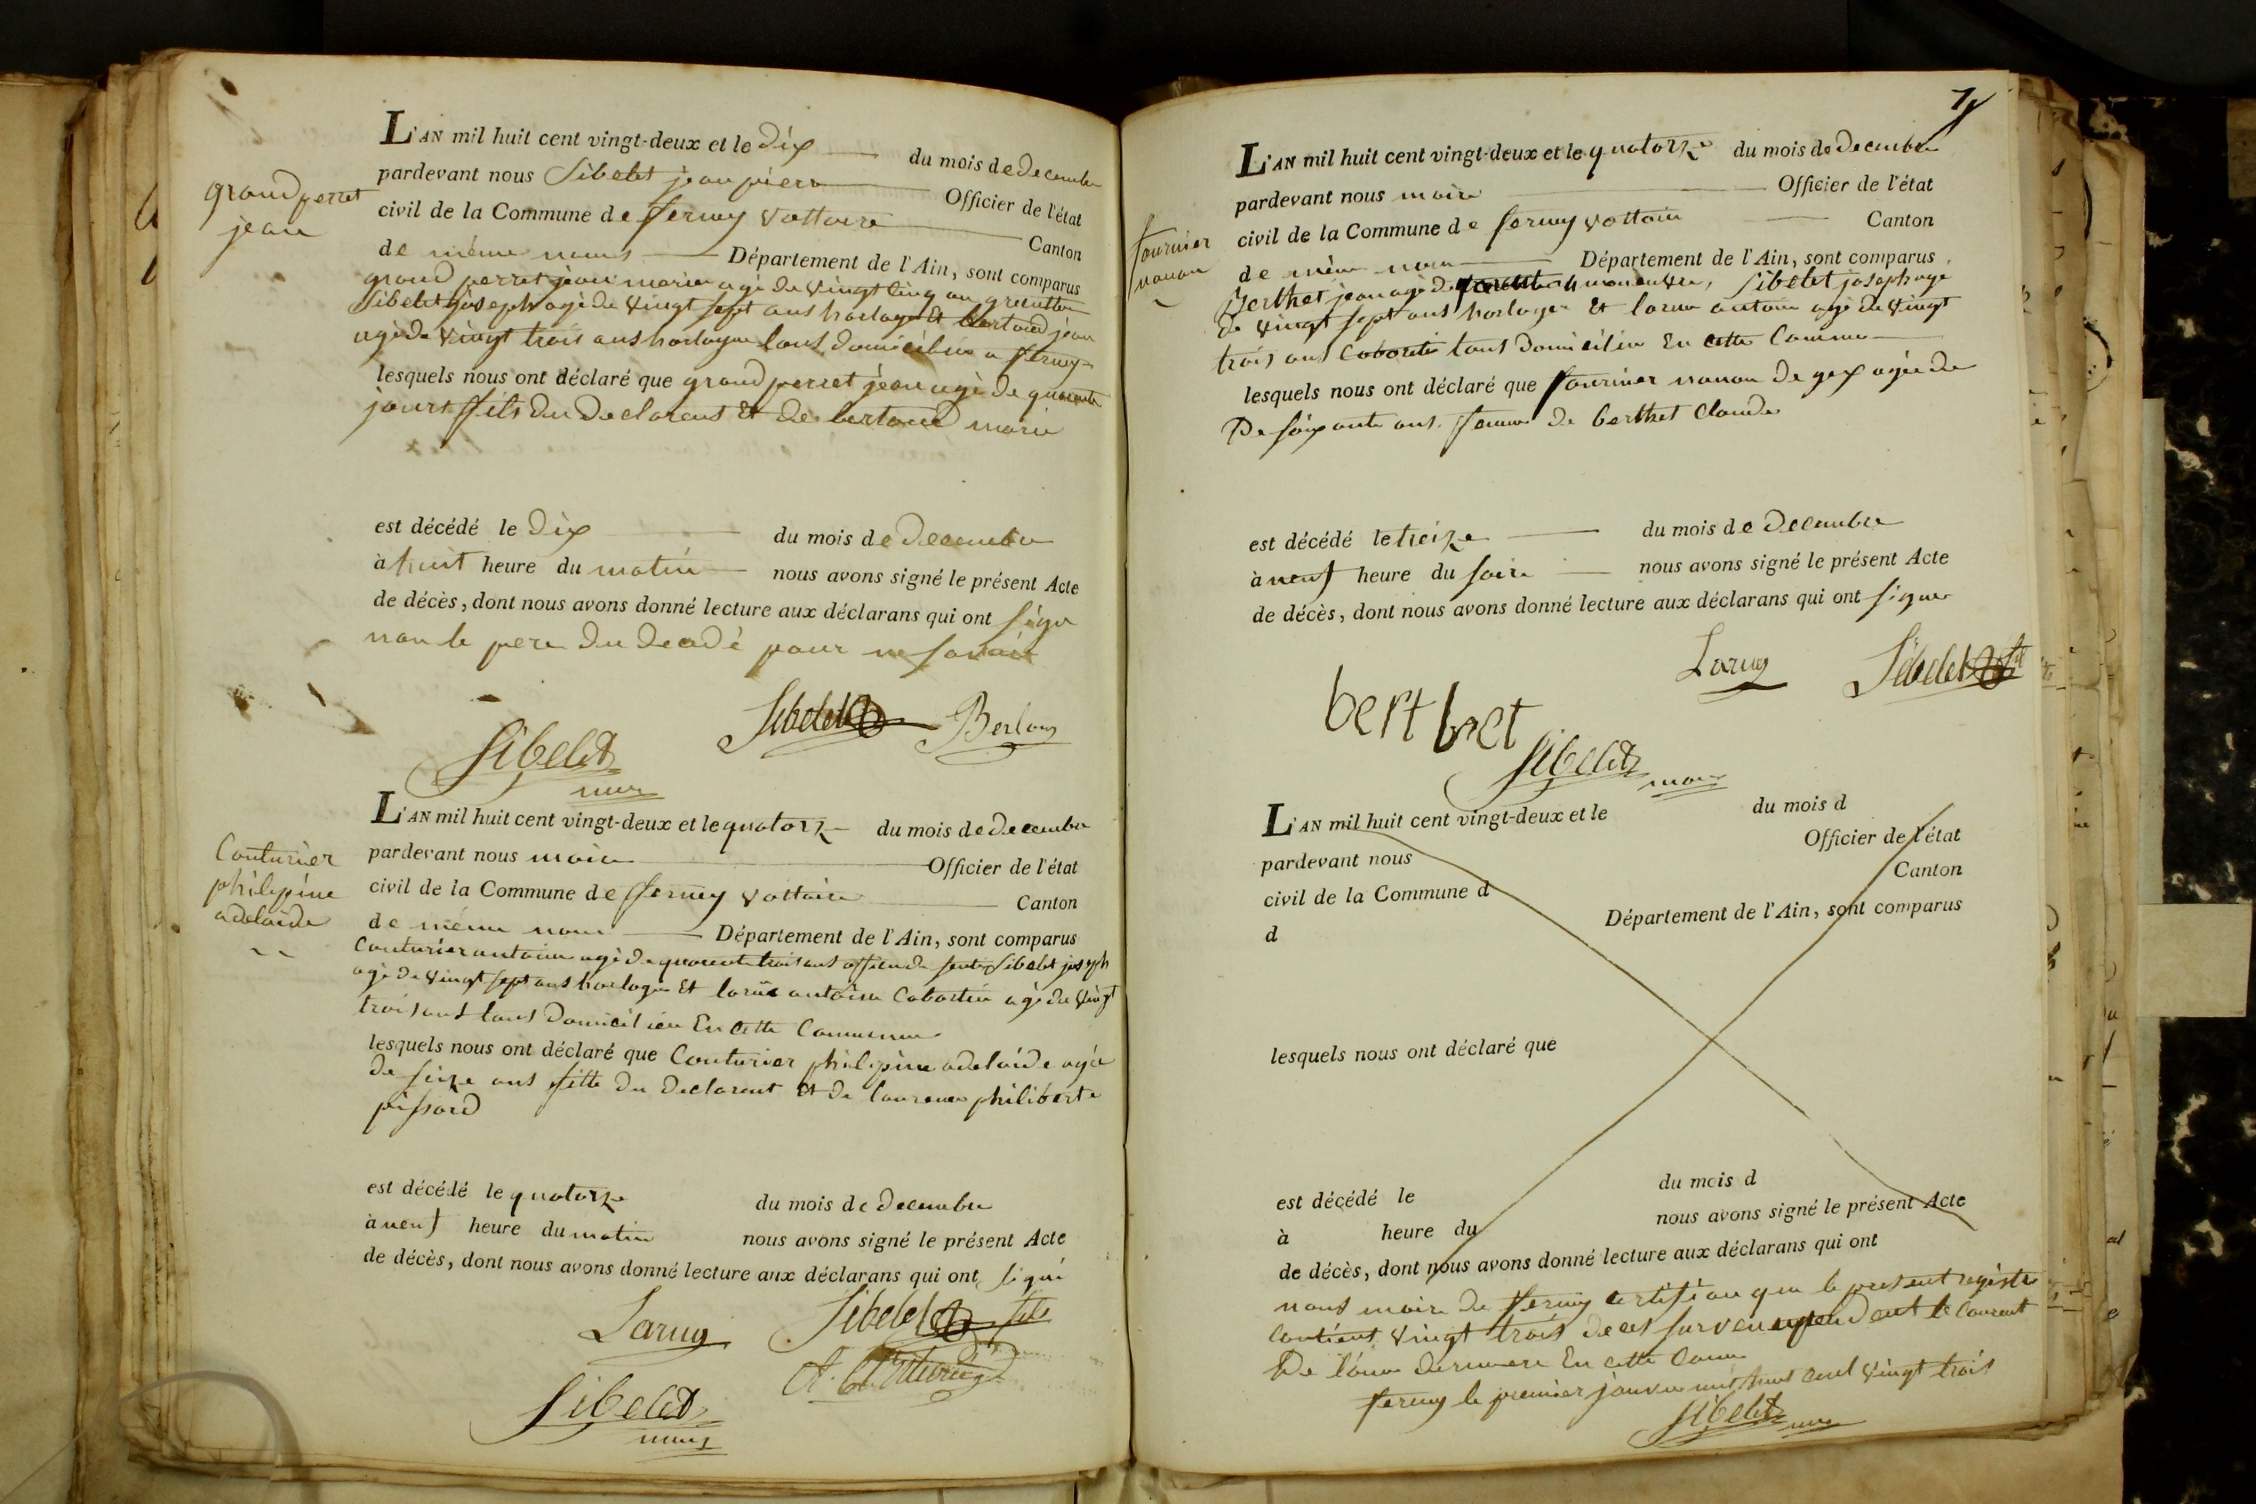 grand perret
jean
L'AN mil huit cent vingt-deux et le dix du mois de decembre
pardevant nous Sibelet jean pierre Officier de l'état
civil de la Commune de ferney voltaire Canton
de même nom Département de l'Ain, sont comparus
grand perret jean marie agé de vingt cinq an
Sibelet joseph agé de vingt sept ans horloger Et bertoud jean
agé de vingt trois ans horloger tous domiciliés a ferney
lesquels nous ont déclaré que grand perret jean agé de quarante
jours fils du declarent Et de bertoud marie
est décédé le dix du mois de decembre
à huit heure du matin nous avons signé le présent Acte
de décès, dont nous avons donné lecture aux déclarans qui ont signé
non le pere du decedé pour ne savoir
Sibelet
Sibelet
maire
Couturier
philipine
adelaide
L'AN mil huit cent vingt-deux et le quatorze du mois de decembre
pardevant nous maire Officier de l'état
civil de la Commune de ferney voltaire Canton
de même nom Département de l'Ain, sont comparus
Couturier antoine agé de quarente trois ans Sibelet joseph
agé de vingt sept ans horloger Et larue antoine agé de vingt
trois ans tous domiciliés En cette Commune
lesquels nous ont déclaré que Couturier philipine adelaide agée
de seize ans fille du declarent Et de philiberte
pissard
est décédé le quatorze du mois de decembre
à neuf heure du matin nous avons signé le présent Acte
de décès, dont nous avons donné lecture aux déclarans qui ont signé
Larue Sibelet fils
Sibelet
maire
7
fournier
nanon
L'AN mil huit cent vingt-deux et le quatorze du mois de decembre
pardevant nous maire Officier de l'état
civil de la Commune de ferney voltaire Canton
de même nom Département de l'Ain, sont comparus
Berthet jean agé de Sibelet joseph age
de vingt sept ans horloger Et larue antoine agé de vingt
trois ans tous domiciliés En cette Commune
lesquels nous ont déclaré que fournier nanon de gex agée de
De soixante ans femme de berthet Claude
est décédé le treize du mois de decembre
à neuf heure du soire nous avons signé le présent Acte
de décès, dont nous avons donné lecture aux déclarans qui ont signer
Larue Sibelet fils
berthet
Sibelet
maire
L'AN mil huit cent vingt-deux et le du mois d
pardevant nous Officier de l'état
civil de la Commune d Canton
d Département de l'Ain, sont comparus
lesquels nous ont déclaré que
est décédé le du mois d
à heure du nous avons signé le présent Acte
de décès, dont nous avons donné lecture aux déclarans qui ont
nous maire de ferney certifion que le present registre
contient vingt trois deces survenu pendent le courent
De l'année derniere En cette Comne
ferney le premier janvier mil huit cent vingt trois
Sibelet maire